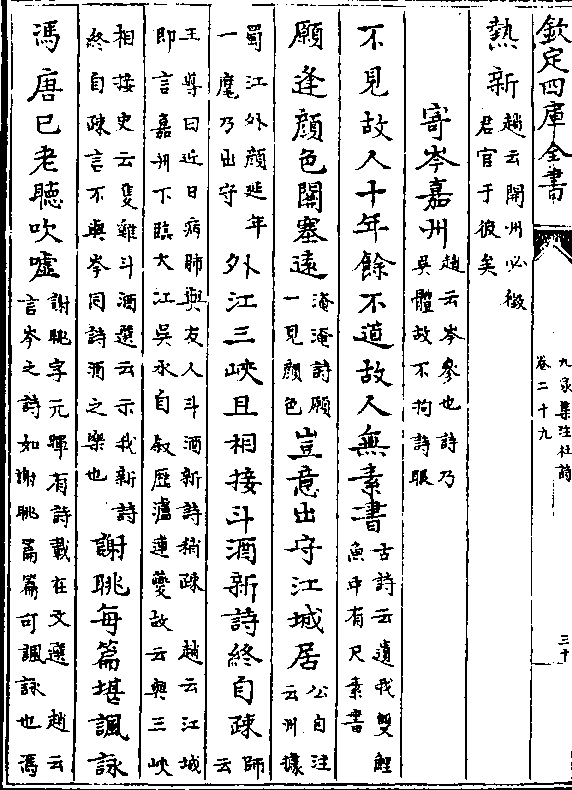 欽定四庫全書
九家集注杜詩
卷二十九
三十
熱新趙云開州必徴
君官于彼矣
寄岑嘉州趙云岑參也詩乃
吳體故不拘詩眼
不見故人十年餘不道故人無素書古詩云遺我雙鯉
魚中有尺素書
願逢顔色關塞遠淹淹詩願
一見顔色豈意出守江城居公自注
云州據
蜀江外顔延年
一麾乃出守外江三峽且相接斗酒新詩終自疎師
云
王導曰近日病肺與友人斗酒新詩稍疎趙云江城
即言嘉州下臨大江吳永自叙歴瀘連夔故云與三峽
相接史云隻雞斗酒選云示我新詩
終自疎言不與岑同詩酒之樂也謝朓每篇堪諷詠
馮唐已老聽吹噓謝朓字元暉有詩載在文選趙云
言岑之詩如謝朓篇篇可諷詠也馮